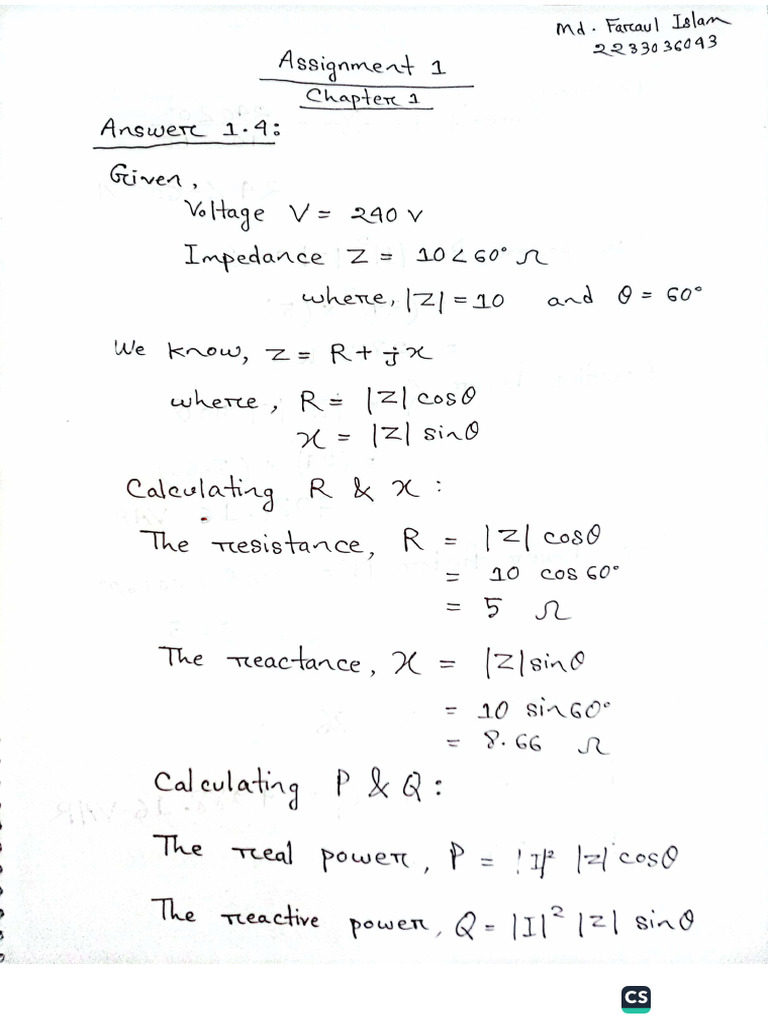 Md. Faraul Islam
2233036043
Assignment 1
Chapter 1
Answer 1.4:
Given,
Voltage V = 240 v
Impedance Z = 10<60° Ω
where, |Z| = 10 and θ = 60°
We know, Z = R + jx
where, R = |Z| cosθ
x = |Z| sinθ
Calculating R & x :
The resistance, R = |Z| cosθ
= 10 cos 60°
= 5 Ω
The reactance, x = |Z| sinθ
= 10 sin60°
= 8.66 Ω
Calculating P & Q :
The real power, P = |I|² |Z| cosθ
The reactive power, Q = |I|² |Z| sinθ
CS